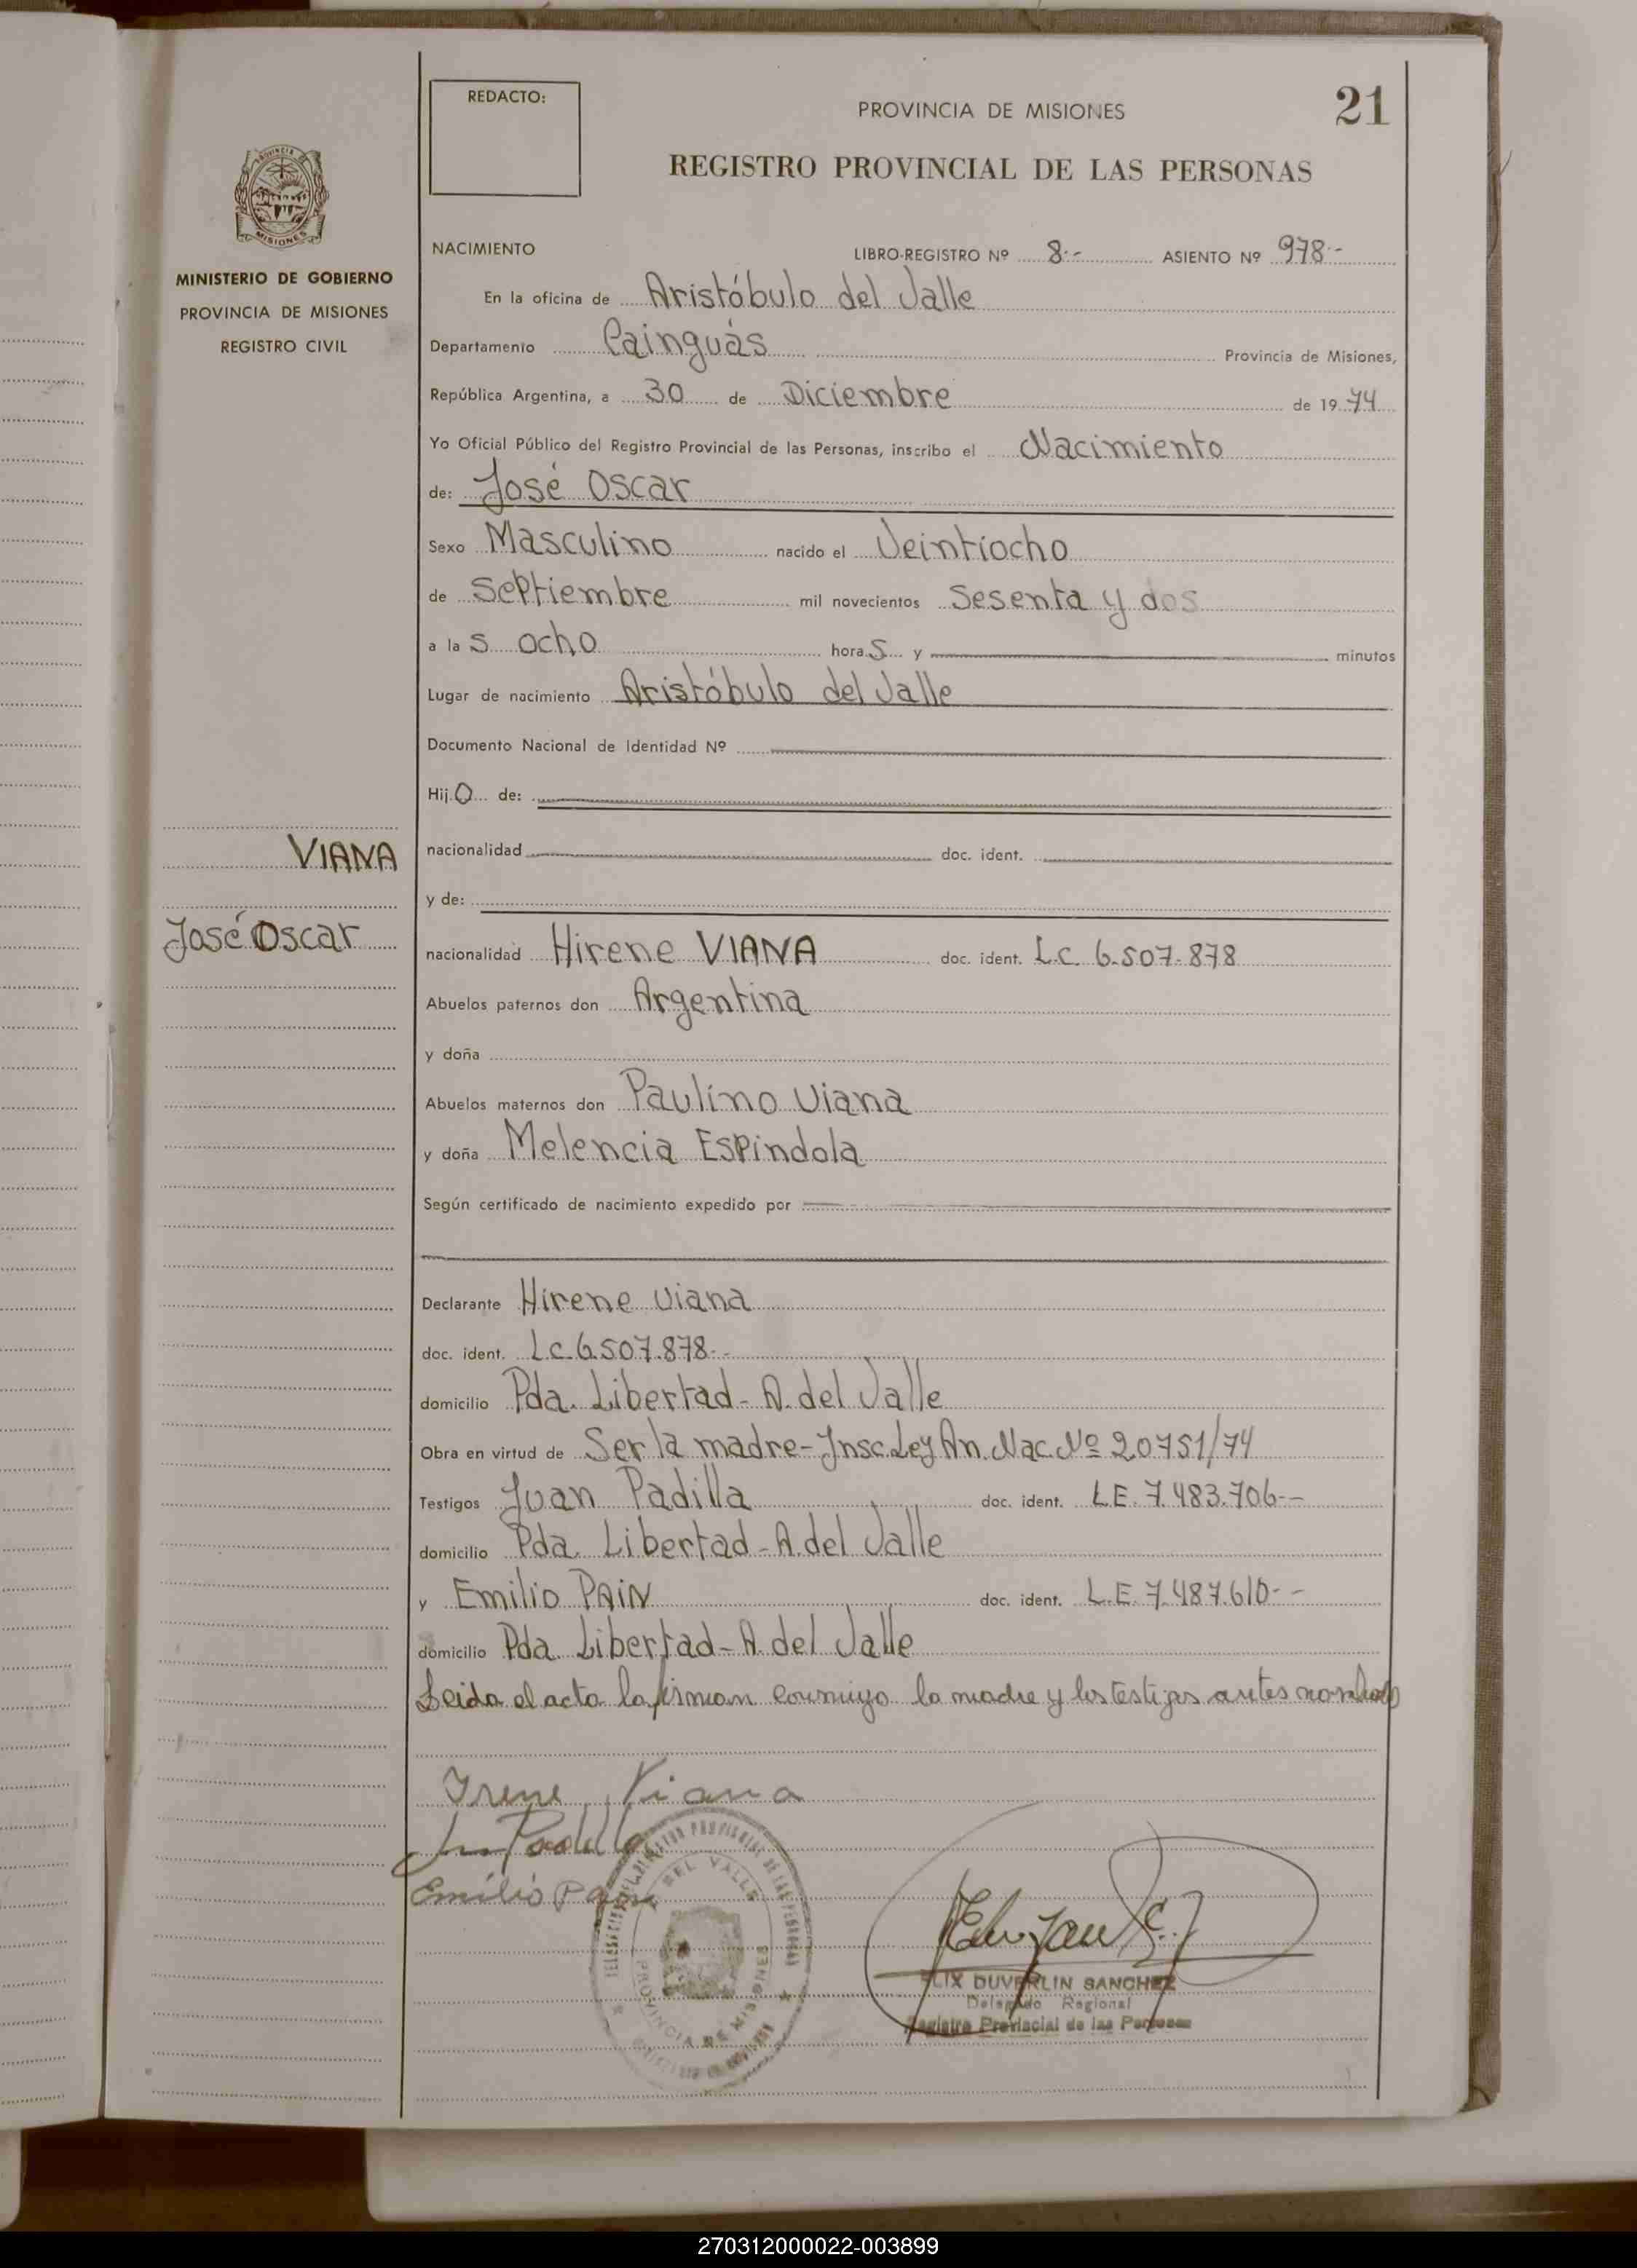 REDACTO:
PROVINCIA DE MISIONES
21
REGISTRO PROVINCIAL DE LAS PERSONAS
MISIONES
MINISTERIO DE GOBIERNO
PROVINCIA DE MISIONES
REGISTRO CIVIL
NACIMIENTO LIBRO-REGISTRO Nº 8.- ASIENTO Nº 978.-
En la oficina de Aristóbulo del Valle
Departamento Cainguás Provincia de Misiones,
República Argentina, a 30 de Diciembre de 1974
Yo Oficial Público del Registro Provincial de las Personas, inscribo el Nacimiento
de: José Oscar
Sexo Masculino nacido el Veintiocho
de Septiembre mil novecientos Sesenta y dos
a las ocho horas y minutos
Lugar de nacimiento Aristóbulo del Valle
Documento Nacional de Identidad Nº
Hijo de:
VIANA
nacionalidad doc. ident.
y de:
José Oscar
nacionalidad Hirene VIANA doc. ident. L.C. 6.507.878
Abuelos paternos don Argentina
y doña
Abuelos maternos don Paulino Viana
y doña Melencia Espindola
Según certificado de nacimiento expedido por
Declarante Hirene Viana
doc. ident. L.C. 6.507.878.-
domicilio Pda. Libertad - A. del Valle
Obra en virtud de Ser la madre - Insc. Ley An. Nac. Nº 20751/74
Testigos Juan Padilla doc. ident. L.E. 7.483.706--
domicilio Pda. Libertad - A. del Valle
y Emilio PAIN doc. ident. L.E. 7.487.610--
domicilio Pda. Libertad - A. del Valle
Leida el acta la firman conmigo la madre y los testigos antes nombrados
Irene Viana
Padilla
Emilio Pain
DEL VALLE
PROVINCIA DE MISIONES
ELIX DUVERLIN SANCHEZ
Delegado Regional
Registro Provincial de las Personas
270312000022-003899